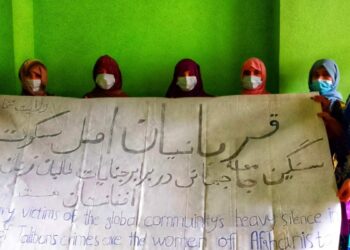 قربانیان اصل سکوت
سنگین جامعه جهانی در برابر جنایات طالبان زنان
افغانستان هستند
victims of the global community's heavy silence
crimes are the women of Afghanist